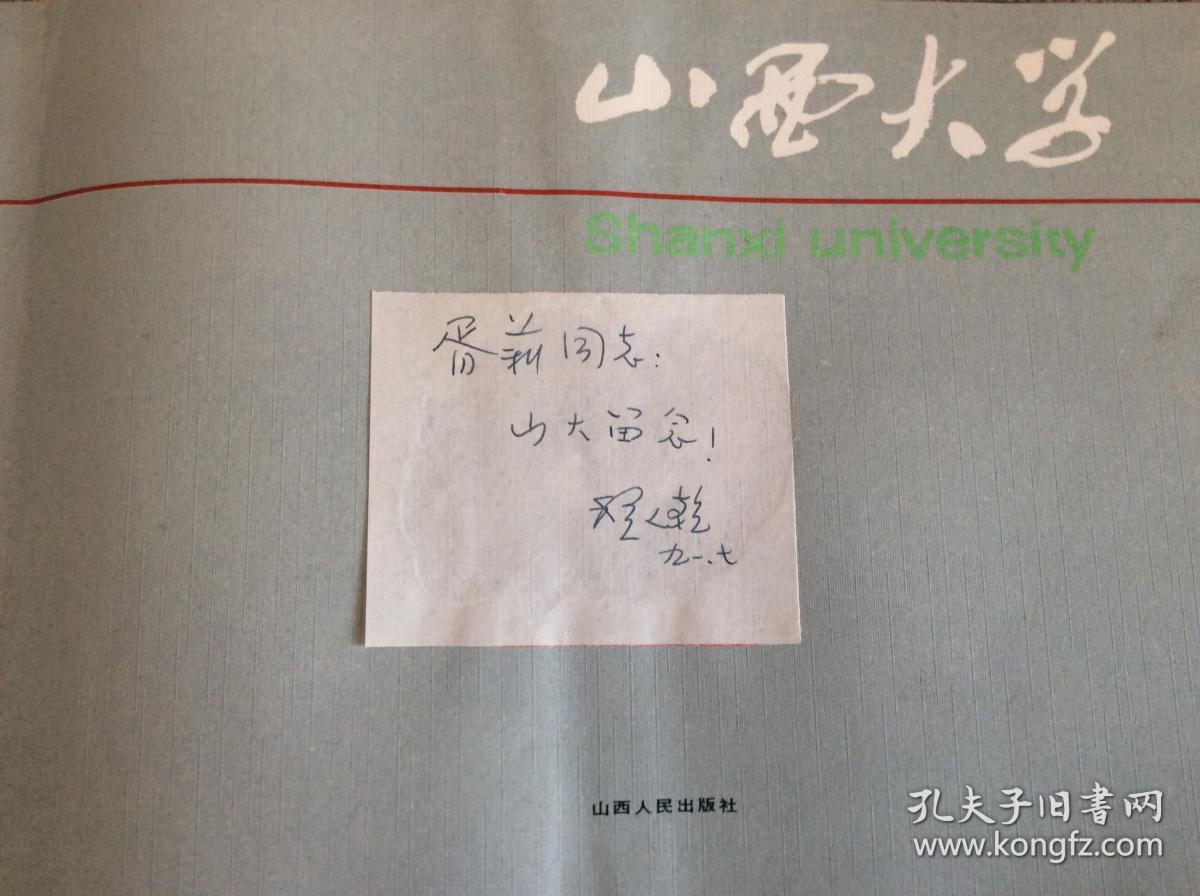 山西大学
Shanxi university
胥莉同志：
山大留念！
程人乾
九一.七
山西人民出版社
孔夫子旧书网
www.kongfz.com